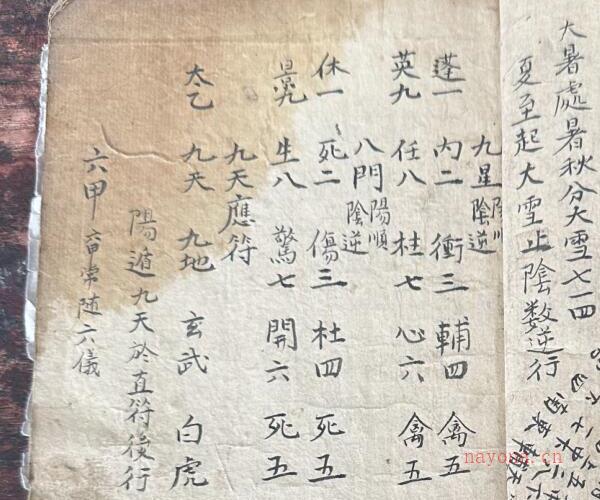 大暑處暑秋分大雪七一四
夏至起大雪止陰数逆行
九星 陰逆
蓬一 內二 衝三 輔四 禽五
英九 任八 柱七 心六 禽五
八門 陽順 陰逆
休一 死二 傷三 杜四 死五
景九 生八 驚七 開六 死五
九天應符
太乙 九天 九地 玄武 白虎
陽遁九天於直符後行
六甲 常随六儀
nayona.cn